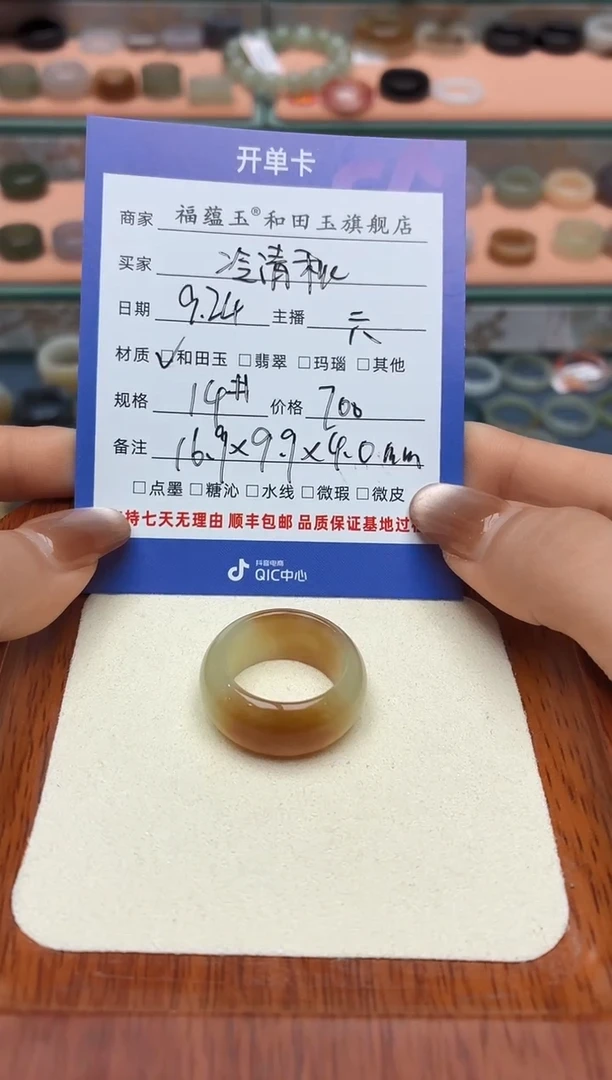 开单卡
商家 福蕴玉®和田玉旗舰店
买家 冷清秋
日期 9.24 主播 六
材质 ☑和田玉 □翡翠 □玛瑙 □其他
规格 19# 价格 700
备注 16.9×9.9×4.0mm
□点墨 □糖沁 □水线 □微瑕 □微皮
持七天无理由 顺丰包邮 品质保证基地过
抖音电商
QIC中心